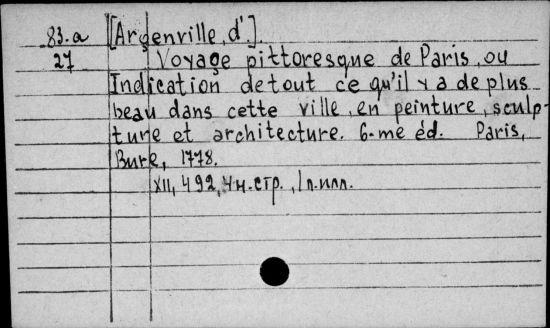 83.a [Argenville, d'.]
27 Voyage pittoresque de Paris, ou
Indication de tout ce qu'il y a de plus
beau dans cette ville, en peinture, sculp-
ture et architecture. 6-me éd. Paris,
Bure, 1778.
XII, 492, 4 н.стр., 1 л.илл.